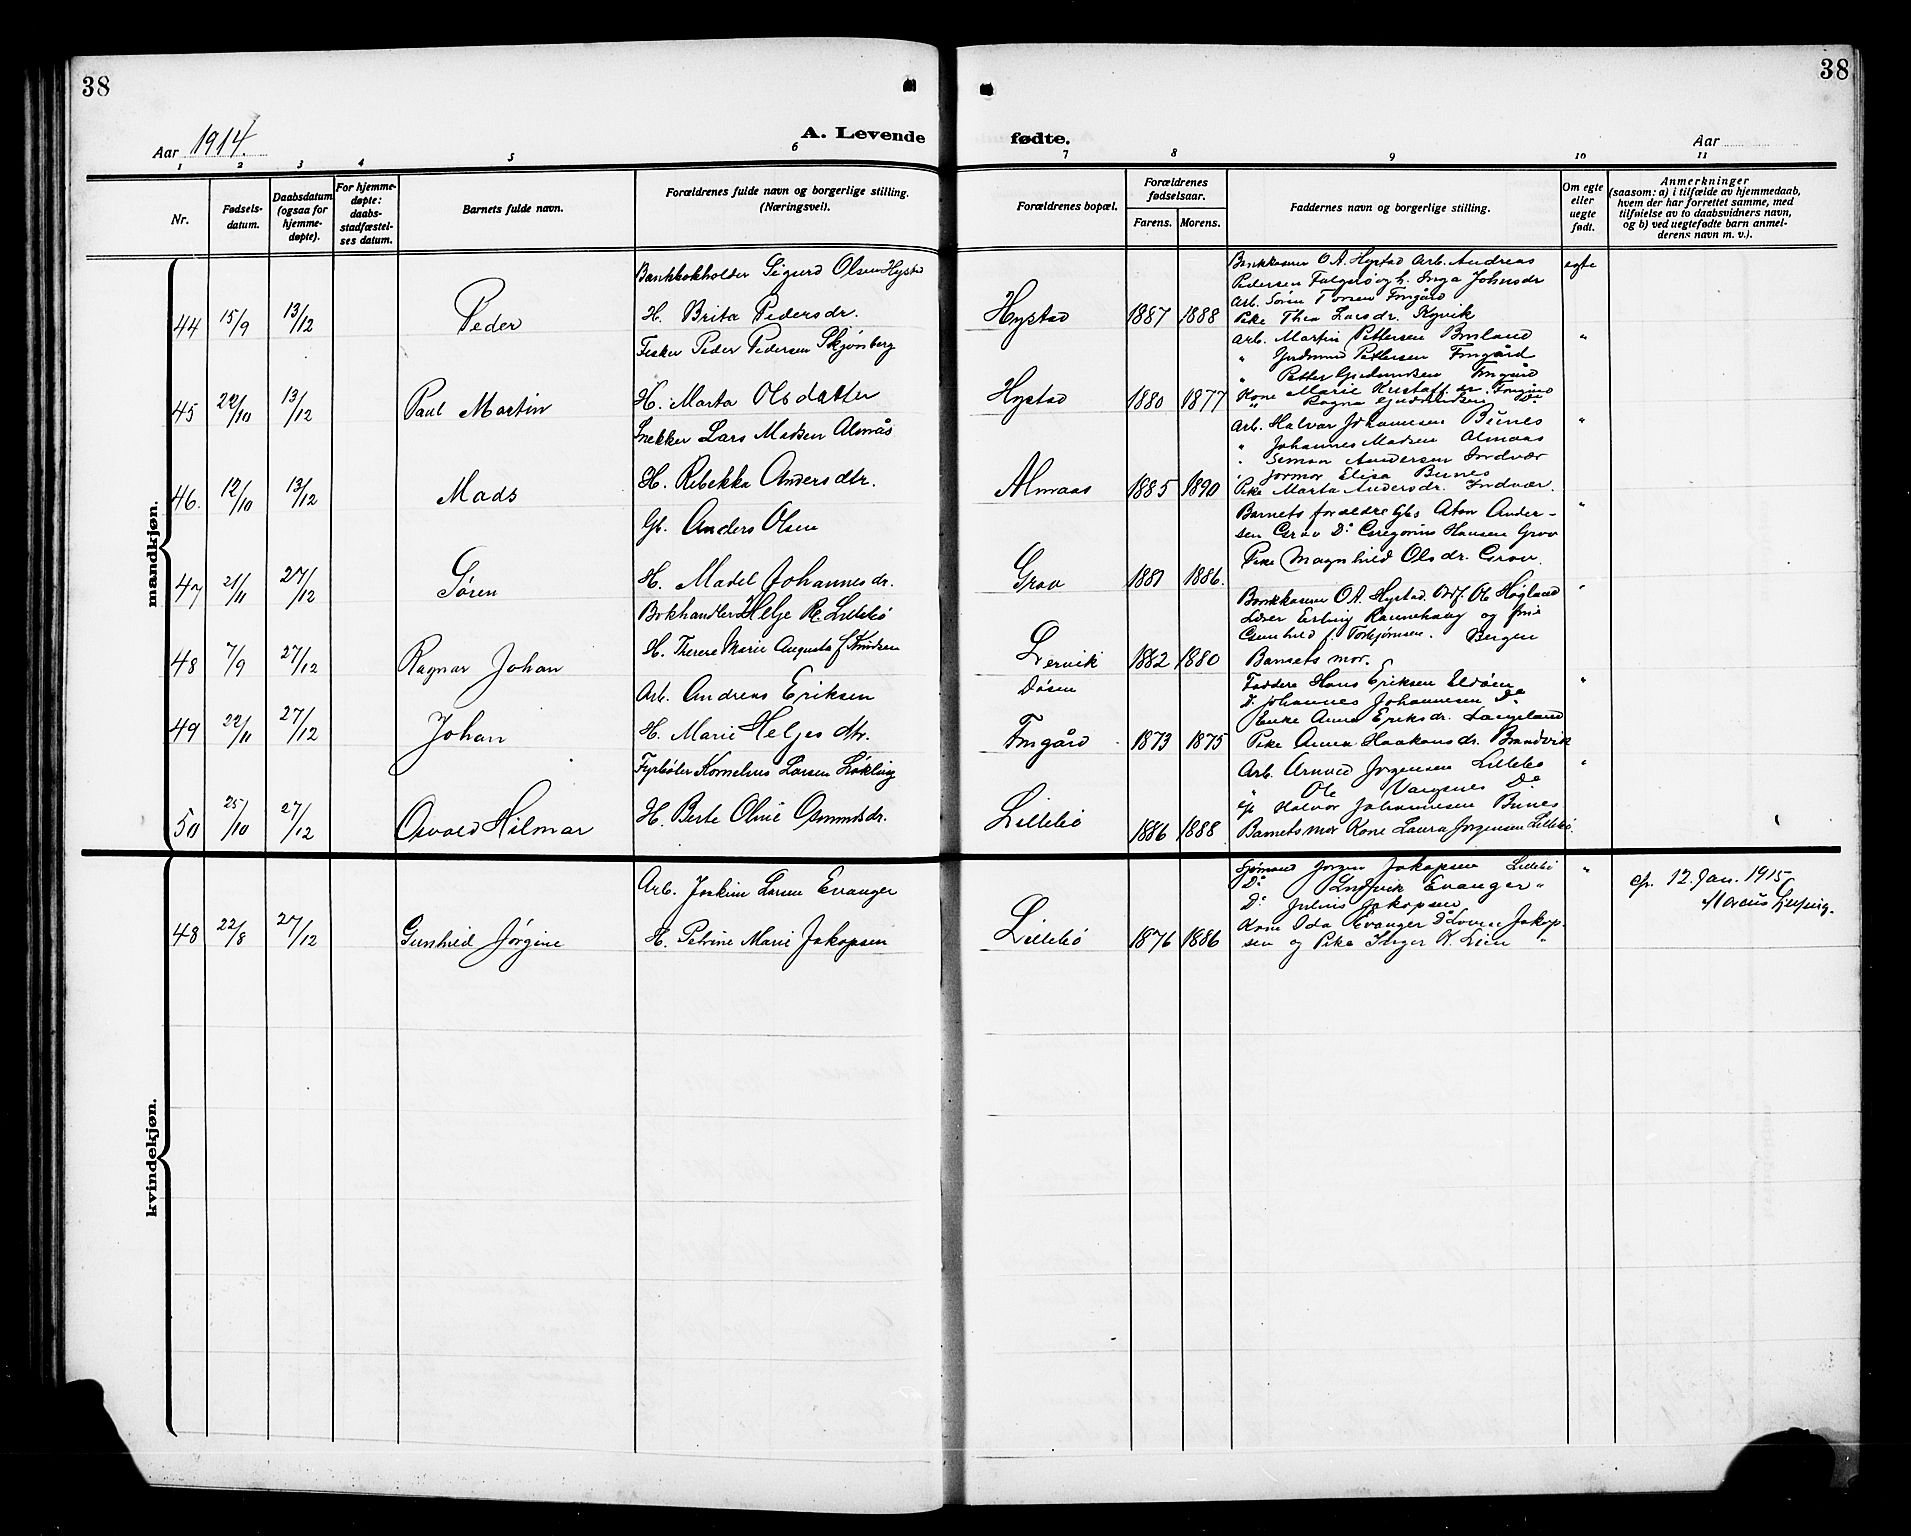 38
38
Aar 1914.
A. Levende
fødte.
Aar
1 2 3 4 5 6 7 8 9 10 11
Nr.
Fødsels-
datum.
Daabsdatum
(ogsaa for
hjemme-
døpte).
For hjemme-
døpte:
daabs-
stadfæstel-
ses datum.
Barnets fulde navn.
Forældrenes fulde navn og borgerlige stilling.
(Næringsvei).
Forældrenes bopæl.
Forældrenes
fødselsaar.
Farens. Morens.
Faddernes navn og borgerlige stilling.
Om egte
eller
uegte
født.
Anmerkninger
(saasom: a) i tilfælde av hjemmedaab,
hvem der har forrettet samme, med
tilføielse av to daabsvidners navn,
og b) ved uegtefødte barn anmel-
derens navn m. v.).
mandkjøn.
44 15/9 13/12 Peder
Bankbokholder Sigurd Olsen Hystad
H. Brita Pedersdr.
Hystad 1887 1888
Bankkaserer O. A. Hystad Arb. Andreas
Pedersen og h. Inga Johnsdr
Arb. Søren
Pike Thea Larsdr. Kyvik
egte
45 22/10 13/12 Paul Martin
Fisker Peder Pedersen Skjønberg
H. Marta Olsdatter
Hystad 1880 1877
Arb. Martin Pettersen
" Gudmund Pettersen
" Petter Gudmundsen
Kone Marie
" Ragna Gudmundsen Do
"
46. 12/10 13/12 Mads
Snekker Lars Madsen Almås
H. Rebekka Andersdtr.
Almaas 1885 1890
Arb. Halvar Johannesen Bunes
" Johannes Madsen Almaas
" Simon Andersen Indvær
" Jormor Elisa Bunes
Pike Marta Andersdr. Indvær.
"
47 21/11 27/12 Søren
Gb. Anders Olsen
H. Madel Johannesdr.
Grov 1881 1886.
Barnets forældre Gbs Aton Ander-
sen Grov Do Gregorius Hansen Grov
Pike Magnhild Olsdr. Grov.
"
48 7/9 27/12 Ragnar Johan
Bokhandler Helje R. Lillebø
H. Therese Marie Augusta f. Knudsen
Lervik 1882 1880
Bankkaserer O. A. Hystad. Ole Høgland
Lærer Erling Ravnehaug og frue
Gunhild f. Torbjørnsen. Bergen
Barnets mor.
"
49 22/11 27/12 Johan
Arb. Andreas Eriksen
H. Marie Heljesdtr.
Døsen
1873 1875
Faddere Hans Eriksen Eldøen
D. Johannes Johannesen Do
Enke Anna Eriksdr. Langeland
Pike Anna Haakonsdr. Brandvik
"
50 25/10 27/12 Osvald Hilmar
Fyrbøter Kornelius Larsen Løkling
H. Berte Oline Osmundsdr.
Lillebø 1886 1888
Arb. Arnved Jørgensen Lillebø
" Ole Vangsnes Do
Halvor Johannesen Bunes
Barnets mor Kone Laura Jørgensen Lillebø.
"
kvindekjøn.
48 22/8 27/12 Gunhild Jørgine
Arb. Joakim Larsen Evanger
H. Petrine Marie Jakopsen
Lillebø 1876 1886
Sjømand Jørgen Jakopsen Lillebø
Do Ludvik Evanger "
Do Julius Jakopsen
Kone Oda Evanger Do Lovise Jakop-
sen og Pike Inger K. Lien "
"
12. Jan. 1915